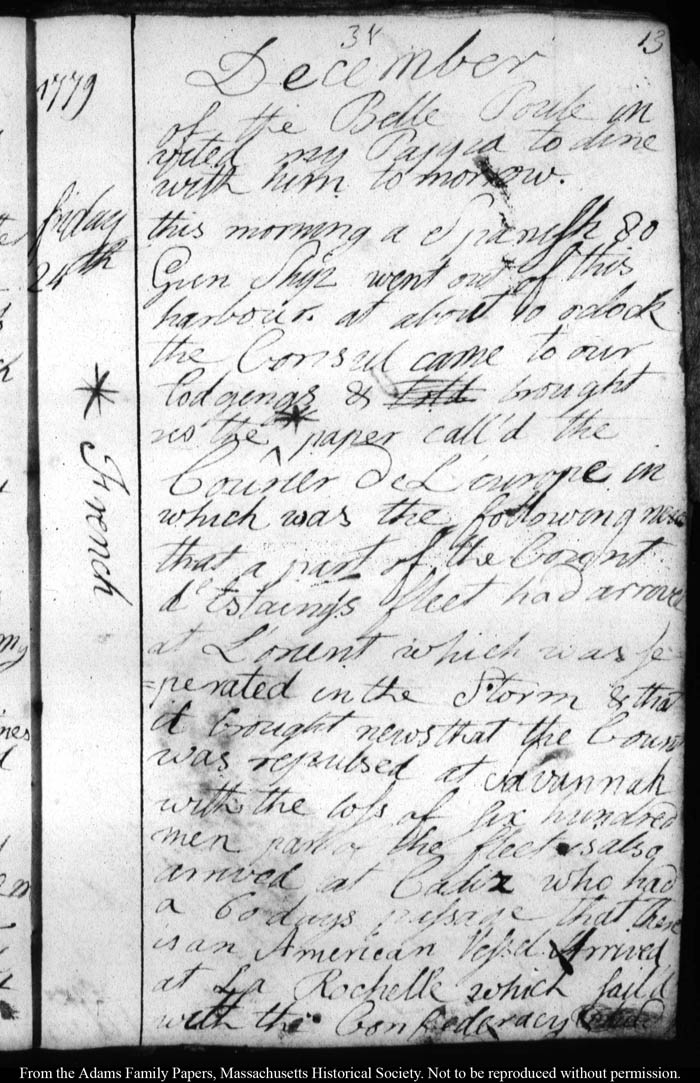 34
13
December
1779
of the Belle Poule in
vited my Pappa to dine
with him to morrow.
friday
24th
this morning a Spanish 80
Gun Ship went out of this
harbour. at about 10 oclock
the Consul came to our
lodgengs & brought
us the * paper call'd the
* French
Courier De L'europe in
which was the following news
that a part of the Count
d'Estaings fleet had arrived
at L'orient which was se
=perated in the Storm & that
it brought news that the Count
was repulsed at Savannah
with the loss of six hundred
men part of the fleet is also
arrived at Cadiz who had
a 60 days passage that there
is an American Vessel Arrived
at La Rochelle which sail'd
with the Confederacy
From the Adams Family Papers, Massachusetts Historical Society. Not to be reproduced without permission.